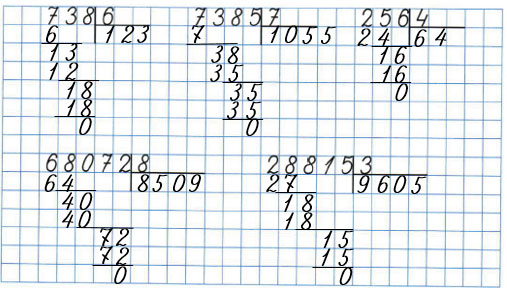 738 6 7385 7 256 4
6 123 7 1055 24 64
13 38 16
12 35 16
18 35 0
18 35
0 0
68072 8 28815 3
64 8509 27 9605
40 18
40 18
72 15
72 15
0 0